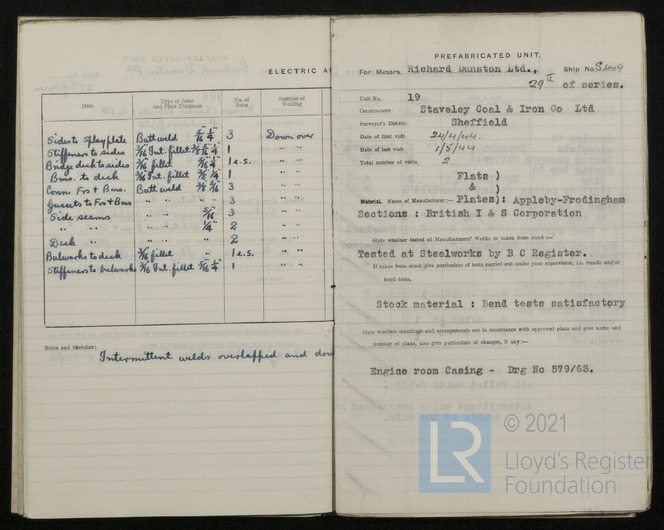 ELECTRIC A
Item
Type of Joint and Plate Thickness
No. of Runs
Position of Welding
Sides to Splayplate Butt weld 5/16 1/4" 3 Down over
Stiffeners to sides 3/16 Int. fillet 5/16 1/4" 1 " "
Bridge deck to sides 3/16 fillet 5/16 1/4" 1 e.s. " "
Bms. to deck 3/16 Int. fillet 1 " "
Conn Frs & Bms. Butt weld 3 " "
Gussets to Frs & Bms " " 3 " "
Side seams " " 5/16" 3 " "
" " " " 1/4" 2 " "
Deck " " " 2
Bulwarks to deck 3/16 fillet " " 1 e.s. " "
Stiffeners to bulwarks 3/16 Int. fillet 5/16 1/4" 1 " "
Notes and Sketches:
Intermittent welds overlapped and dou
PREFABRICATED UNIT.
For Messrs. Richard Dunston Ltd., Ship No. S449
29th of series.
Unit No. 19
Constructors Staveley Coal & Iron Co Ltd
Surveyor's District Sheffield
Date of first visit 24/4/44.
Date of last visit 1/5/44
Total number of visits 2
Flats )
& )
Material. Name of Manufacturer:— Plates): Appleby-Frodingham
Sections : British I & S Corporation
State whether tested at Manufacturers' Works or taken from stock:—
Tested at Steelworks by B C Register.
If taken from stock give particulars of tests carried out under your supervision, i.e. tensile and/or
bend tests.
Stock material : Bend tests satisfactory
State whether scantlings and arrangements are in accordance with approved plans and give name and
number of plans, also give particulars of changes, if any:—
Engine room Casing - Drg No 579/63.
LR © 2021
Lloyd's Register
Foundation